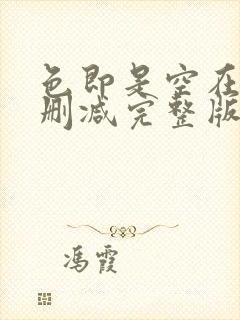 色即是空在
删减完整版
冯霞